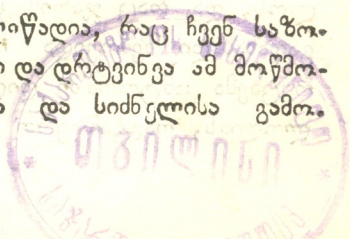 იწადია, რაც ჩვენ საზო-
ი და დრტვინვა ამ მოწმო-
და სიძნელისა გამო.
თბილისი